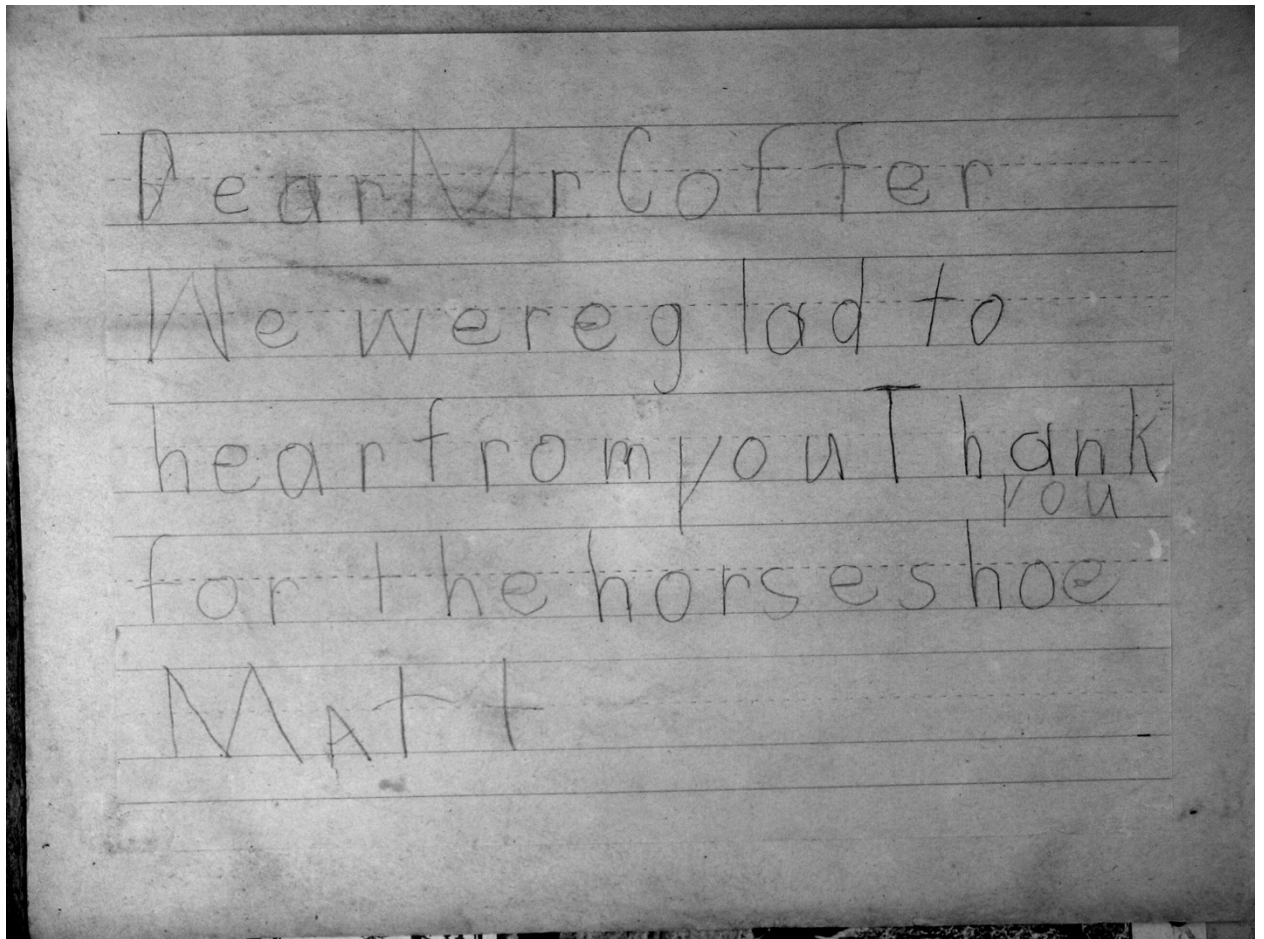 Dear Mr Coffer
We were glad to
hear from you Thank
you
for the horseshoe
MATt